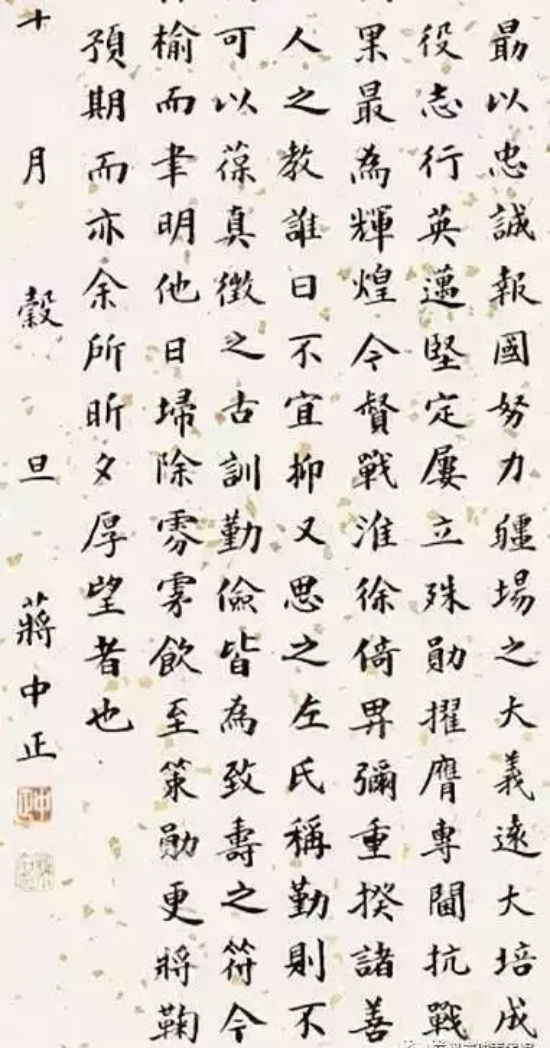 勗以忠誠報國努力疆場之大義遠大培成
役志行英邁堅定屢立殊勛擢膺專閫抗戰
果最為輝煌今督戰淮徐倚畀彌重揆諸善
人之教誰曰不宜抑又思之左氏稱勤則不
可以葆真徵之古訓勤儉皆為致壽之符今
榆而聿明他日埽除雰雺飲至策勛更將鞠
預期而亦余所昕夕厚望者也
十月穀旦蔣中正
中正